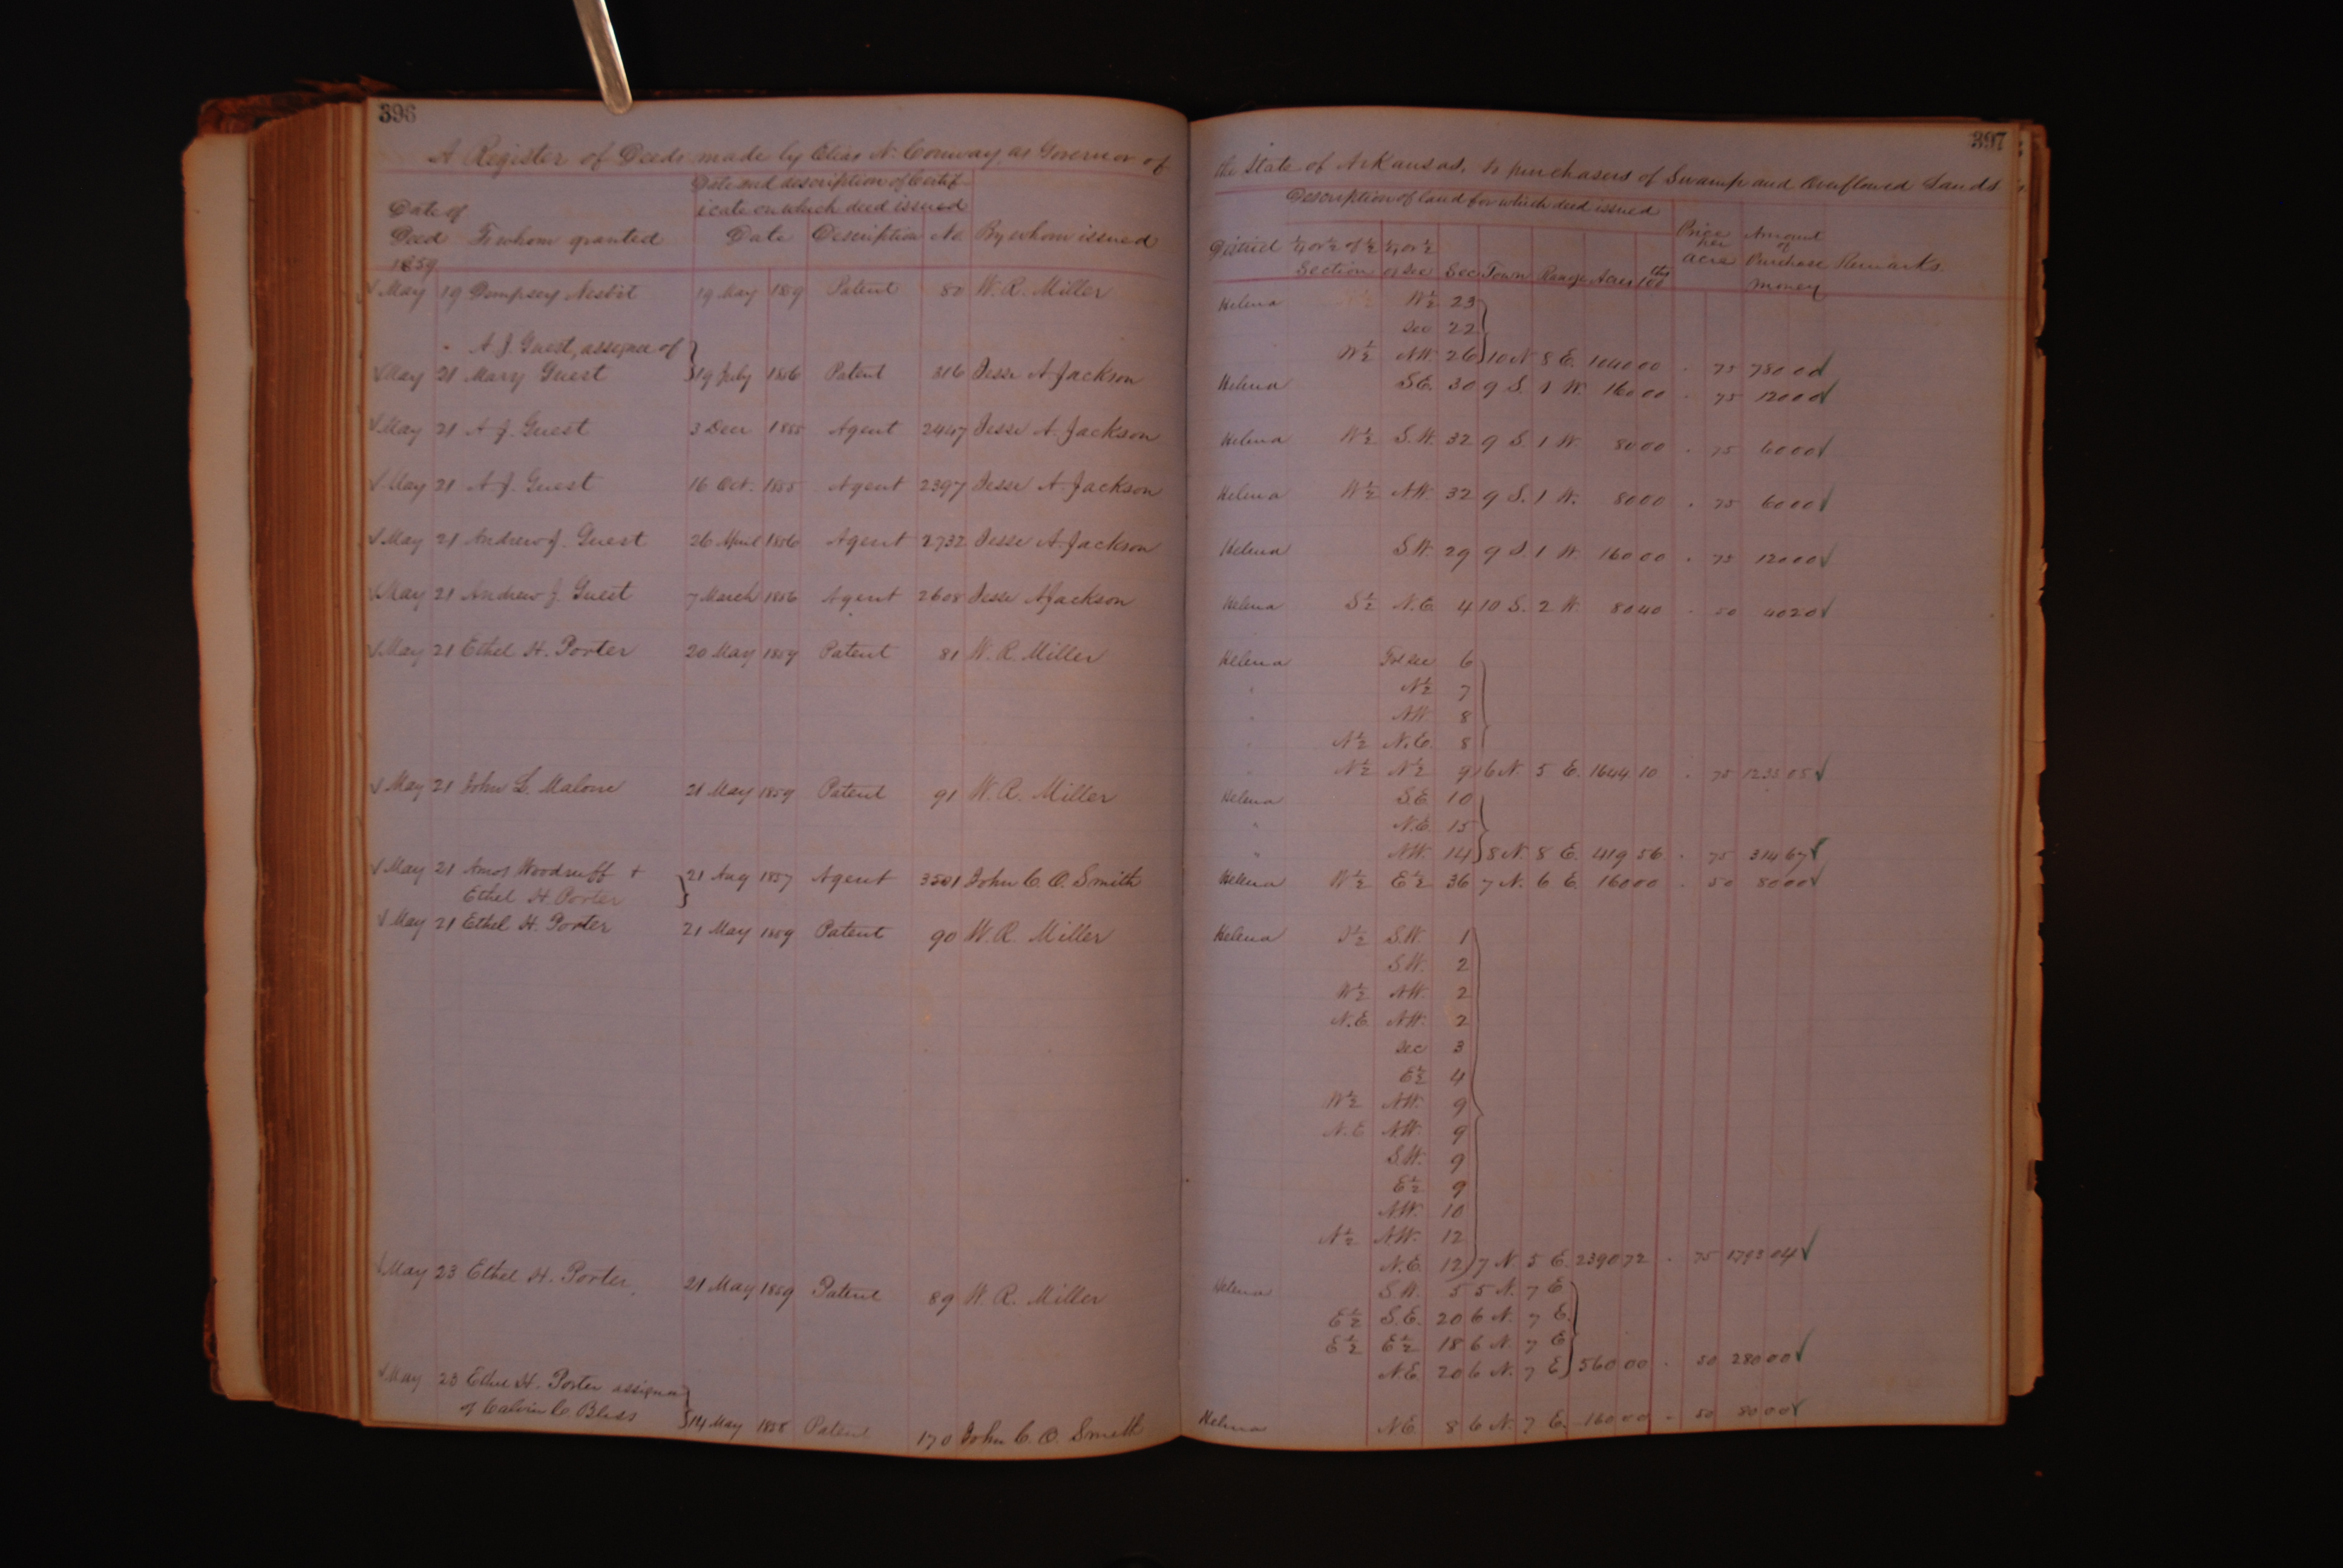 396
A Register of Deeds made by Elias N. Conway, as Governor of
Date and description of Certif-
icate on which deed issued
Date of
Deed To whom granted Date Description No. By whom issued
1859
May 19 Dempsey Nesbit 19 May 1859 Patent 80 W. R. Miller
A. J. Guest, assignee of
May 21 Mary Guest 19 July 1856 Patent 316 Jesse A Jackson
May 21 A. J. Guest 3 Decr 1855 Agent 2447 Jesse A. Jackson
May 21 A. J. Guest 16 Oct. 1855 Agent 2397 Jesse A. Jackson
May 21 Andrew J. Guest 26 April 1856 Agent 2732 Jesse A. Jackson
May 21 Andrew J. Guest 7 March 1856 Agent 2608 Jesse A Jackson
May 21 Ethel H. Porter 20 May 1859 Patent 81 W. R. Miller
May 21 John L. Malone 21 May 1859 Patent 91 W. R. Miller
May 21 Amos Woodruff + 21 Aug 1857 Agent 3501 John C. O. Smith
Ethel H. Porter
May 21 Ethel H. Porter 21 May 1859 Patent 90 W. R. Miller
May 23 Ethel H. Porter 21 May 1859 Patent 89 W. R. Miller
May 23 Ethel H. Porter assignee
of Calvin C. Bliss 14 May 1858 Patent 170 John C. O. Smith
397
the State of Arkansas, to purchasers of Swamp and Overflowed Lands
Description of land for which deed issued
District ¼ or ½ of ½ ¼ or ½ Price per acre Amount of
Section of Sec Sec Town Range Acres 100ths Purchase money Remarks
Helena W½ 23
Sec 22
W½ NW. 26 10 N 8 E. 1040 00 . 75 780 00
Helena S.E. 30 9 S. 1 W. 160 00 . 75 120 00
Helena W½ S.W. 32 9 S. 1 W. 80 00 . 75 60 00
Helena W½ N.W. 32 9 S. 1 W. 80 00 . 75 60 00
Helena S.W. 29 9 S. 1 W. 160 00 . 75 120 00
Helena S½ N.E. 4 10 S. 2 W. 80 40 . 50 40 20
Helena Fol sec 6
" N½ 7
" NW 8
" N½ N.E. 8
" N½ N½ 9 6 N. 5 E. 1644 10 . 75 1233 05
Helena S.E. 10
" N.E. 15
" NW. 14 8 N. 8 E. 419 56 . 75 314 67
Helena W½ E½ 36 7 N. 6 E. 160 00 . 50 80 00
Helena S½ S.W. 1
S.W. 2
W½ NW. 2
N.E. NW. 2
Sec 3
E½ 4
W½ NW. 9
N.E. N.W. 9
S.W. 9
E½ 9
N.W. 10
N½ N.W. 12
N.E. 12 7 N. 5 E. 2390 72 . 75 1793 04
Helena S.W. 5 5 N. 7 E
E½ S.E. 20 6 N. 7 E.
E½ E½ 18 6 N. 7 E
N.E. 20 6 N. 7 E 560 00 . 50 280 00
Helena N.E. 8 6 N. 7 E. 160 00 . 50 80 00